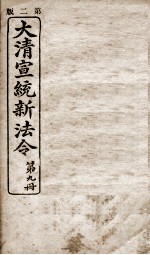 第二版
大清宣統新法令
第九冊